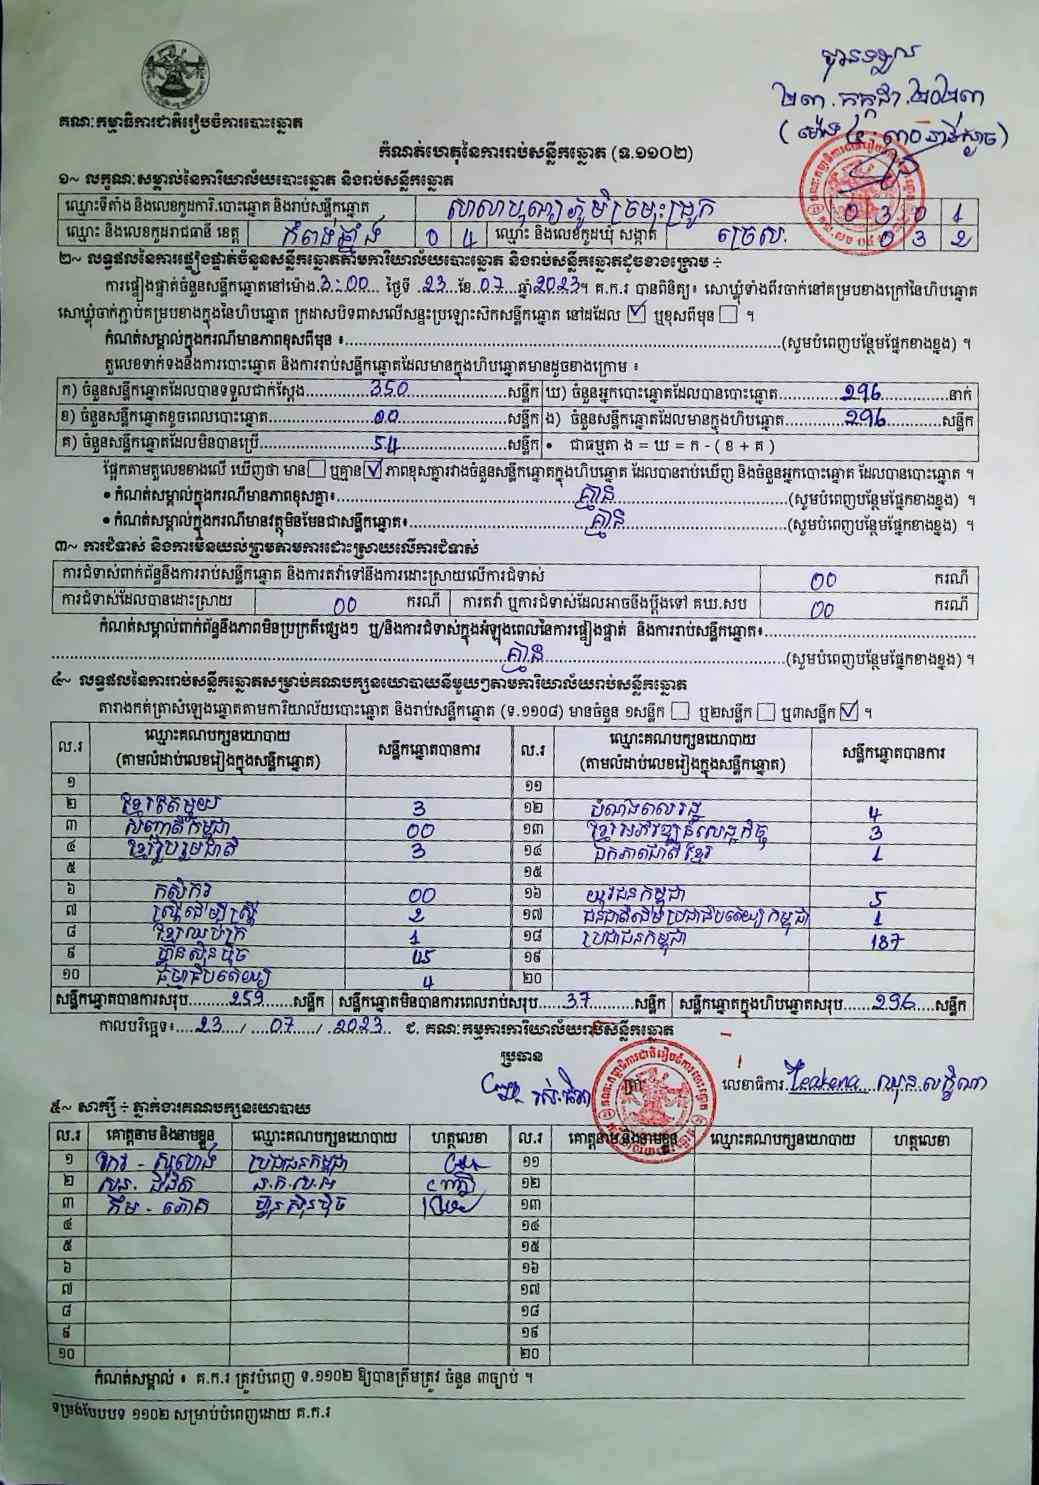 បានទទួល
២៣.កក្កដា.២០២៣
(ម៉ោង ៤:៣០ នាទីល្ងាច)
គណៈកម្មាធិការជាតិរៀបចំការបោះឆ្នោត
កំណត់ហេតុនៃការរាប់សន្លឹកឆ្នោត (ទ.១១០២)
១~ លក្ខណៈសម្គាល់នៃការិយាល័យបោះឆ្នោត និងរាប់សន្លឹកឆ្នោត
ឈ្មោះទីតាំង និងលេខកូដការិ.បោះឆ្នោត និងរាប់សន្លឹកឆ្នោត សាលាបុណ្យភូមិច្រមុះជ្រូក 0 3 0 1
ឈ្មោះ និងលេខកូដរាជធានី ខេត្ត កំពង់ឆ្នាំង 0 4 ឈ្មោះ និងលេខកូដឃុំ សង្កាត់ ច្រេស. 0 3 2
២~ លទ្ធផលនៃការផ្ទៀងផ្ទាត់ចំនួនសន្លឹកឆ្នោតតាមការិយាល័យបោះឆ្នោត និងរាប់សន្លឹកឆ្នោតដូចខាងក្រោម ÷
ការផ្ទៀងផ្ទាត់ចំនួនសន្លឹកឆ្នោតនៅម៉ោង 3:00 ថ្ងៃទី 23 ខែ 07 ឆ្នាំ 2023។ គ.ក.រ បានពិនិត្យ៖ សោឃ្លុំទាំងពីរចាក់នៅគម្របខាងក្រៅនៃហិបឆ្នោត
សោឃ្លុំចាក់ភ្ជាប់គម្របខាងក្នុងនៃហិបឆ្នោត ក្រដាសបិទពាសលើសន្ទះប្រឡោះស៊ិកសន្លឹកឆ្នោត នៅដដែល ☑ ឬខុសពីមុន ☐ ។
កំណត់សម្គាល់ក្នុងករណីមានភាពខុសពីមុន ៖ (សូមបំពេញបន្ថែមផ្នែកខាងខ្នង) ។
តួលេខទាក់ទងនឹងការបោះឆ្នោត និងការរាប់សន្លឹកឆ្នោតដែលមានក្នុងហិបឆ្នោតមានដូចខាងក្រោម ៖
ក) ចំនួនសន្លឹកឆ្នោតដែលបានទទួលជាក់ស្តែង 350 សន្លឹក ឃ) ចំនួនអ្នកបោះឆ្នោតដែលបានបោះឆ្នោត 296 នាក់
ខ) ចំនួនសន្លឹកឆ្នោតខូចពេលបោះឆ្នោត 00 សន្លឹក ង) ចំនួនសន្លឹកឆ្នោតដែលមានក្នុងហិបឆ្នោត 296 សន្លឹក
គ) ចំនួនសន្លឹកឆ្នោតដែលមិនបានប្រើ 54 សន្លឹក • ជាធម្មតា ង = ឃ = ក - ( ខ + គ )
ផ្អែកតាមតួលេខខាងលើ ឃើញថា មាន ☐ ឬគ្មាន ☑ ភាពខុសគ្នារវាងចំនួនសន្លឹកឆ្នោតក្នុងហិបឆ្នោត ដែលបានរាប់ឃើញ និងចំនួនអ្នកបោះឆ្នោត ដែលបានបោះឆ្នោត ។
• កំណត់សម្គាល់ក្នុងករណីមានភាពខុសគ្នា៖ គ្មាន (សូមបំពេញបន្ថែមផ្នែកខាងខ្នង) ។
• កំណត់សម្គាល់ក្នុងករណីមានវត្ថុមិនមែនជាសន្លឹកឆ្នោត៖ គ្មាន (សូមបំពេញបន្ថែមផ្នែកខាងខ្នង) ។
៣~ ការជំទាស់ និងការមិនយល់ព្រមតាមការដោះស្រាយលើការជំទាស់
ការជំទាស់ពាក់ព័ន្ធនឹងការរាប់សន្លឹកឆ្នោត និងការតវ៉ាទៅនឹងការដោះស្រាយលើការជំទាស់ 00 ករណី
ការជំទាស់ដែលបានដោះស្រាយ 00 ករណី ការតវ៉ា ឬការជំទាស់ដែលអាចប្តឹងទៅ គឃ.សប 00 ករណី
កំណត់សម្គាល់ពាក់ព័ន្ធនឹងភាពមិនប្រក្រតីផ្សេងៗ ឬ/និងការជំទាស់ក្នុងអំឡុងពេលនៃការផ្ទៀងផ្ទាត់ និងការរាប់សន្លឹកឆ្នោត៖
គ្មាន (សូមបំពេញបន្ថែមផ្នែកខាងខ្នង) ។
៤~ លទ្ធផលនៃការរាប់សន្លឹកឆ្នោតសម្រាប់គណបក្សនយោបាយនីមួយៗតាមការិយាល័យរាប់សន្លឹកឆ្នោត
តារាងកត់ត្រាសំឡេងឆ្នោតតាមការិយាល័យបោះឆ្នោត និងរាប់សន្លឹកឆ្នោត (ទ.១១០៨) មានចំនួន ១សន្លឹក ☐ ឬ២សន្លឹក ☐ ឬ៣សន្លឹក ☑ ។
ល.រ ឈ្មោះគណបក្សនយោបាយ (តាមលំដាប់លេខរៀងក្នុងសន្លឹកឆ្នោត) សន្លឹកឆ្នោតបានការ ល.រ ឈ្មោះគណបក្សនយោបាយ (តាមលំដាប់លេខរៀងក្នុងសន្លឹកឆ្នោត) សន្លឹកឆ្នោតបានការ
១ ១១
២ ខ្មែរតែមួយ 3 ១២ បំណងពលរដ្ឋ 4
៣ សញ្ជាតិកម្ពុជា 00 ១៣ ខ្មែរអភិវឌ្ឍន៍សេដ្ឋកិច្ច 3
៤ ខ្មែររួបរួមជាតិ 3 ១៤ ឯកភាពជាតិខ្មែរ 1
៥ ១៥
៦ កសិករ 00 ១៦ យុវជនកម្ពុជា 5
៧ ស្ត្រីដើម្បីស្ត្រី 2 ១៧ ជនជាតិដើមប្រជាធិបតេយ្យកម្ពុជា 1
៨ ខ្មែរឈប់ក្រ 1 ១៨ ប្រជាជនកម្ពុជា 187
៩ ហ្វ៊ុនស៊ិនប៉ិច 45 ១៩
១០ ធម្មាធិបតេយ្យ 4 ២០
សន្លឹកឆ្នោតបានការសរុប 259 សន្លឹក សន្លឹកឆ្នោតមិនបានការពេលរាប់សរុប 37 សន្លឹក សន្លឹកឆ្នោតក្នុងហិបឆ្នោតសរុប 296 សន្លឹក
កាលបរិច្ឆេទ៖ 23 / 07 / 2023 ជ. គណៈកម្មការការិយាល័យរាប់សន្លឹកឆ្នោត
ប្រធាន
លេខាធិការ Leakena ឈុន លក្ខិណា
៥~ សាក្សី ÷ ភ្នាក់ងារគណបក្សនយោបាយ
ល.រ គោត្តនាម និងនាមខ្លួន ឈ្មោះគណបក្សនយោបាយ ហត្ថលេខា ល.រ គោត្តនាម និងនាមខ្លួន ឈ្មោះគណបក្សនយោបាយ ហត្ថលេខា
១ ប្រជាជនកម្ពុជា ១១
២ ១២
៣ ហ្វ៊ុនស៊ិនប៉ិច ១៣
៤ ១៤
៥ ១៥
៦ ១៦
៧ ១៧
៨ ១៨
៩ ១៩
១០ ២០
កំណត់សម្គាល់ ៖ គ.ក.រ ត្រូវបំពេញ ទ.១១០២ ឱ្យបានត្រឹមត្រូវ ចំនួន ៣ច្បាប់ ។
ទម្រង់បែបបទ ១១០២ សម្រាប់បំពេញដោយ គ.ក.រ